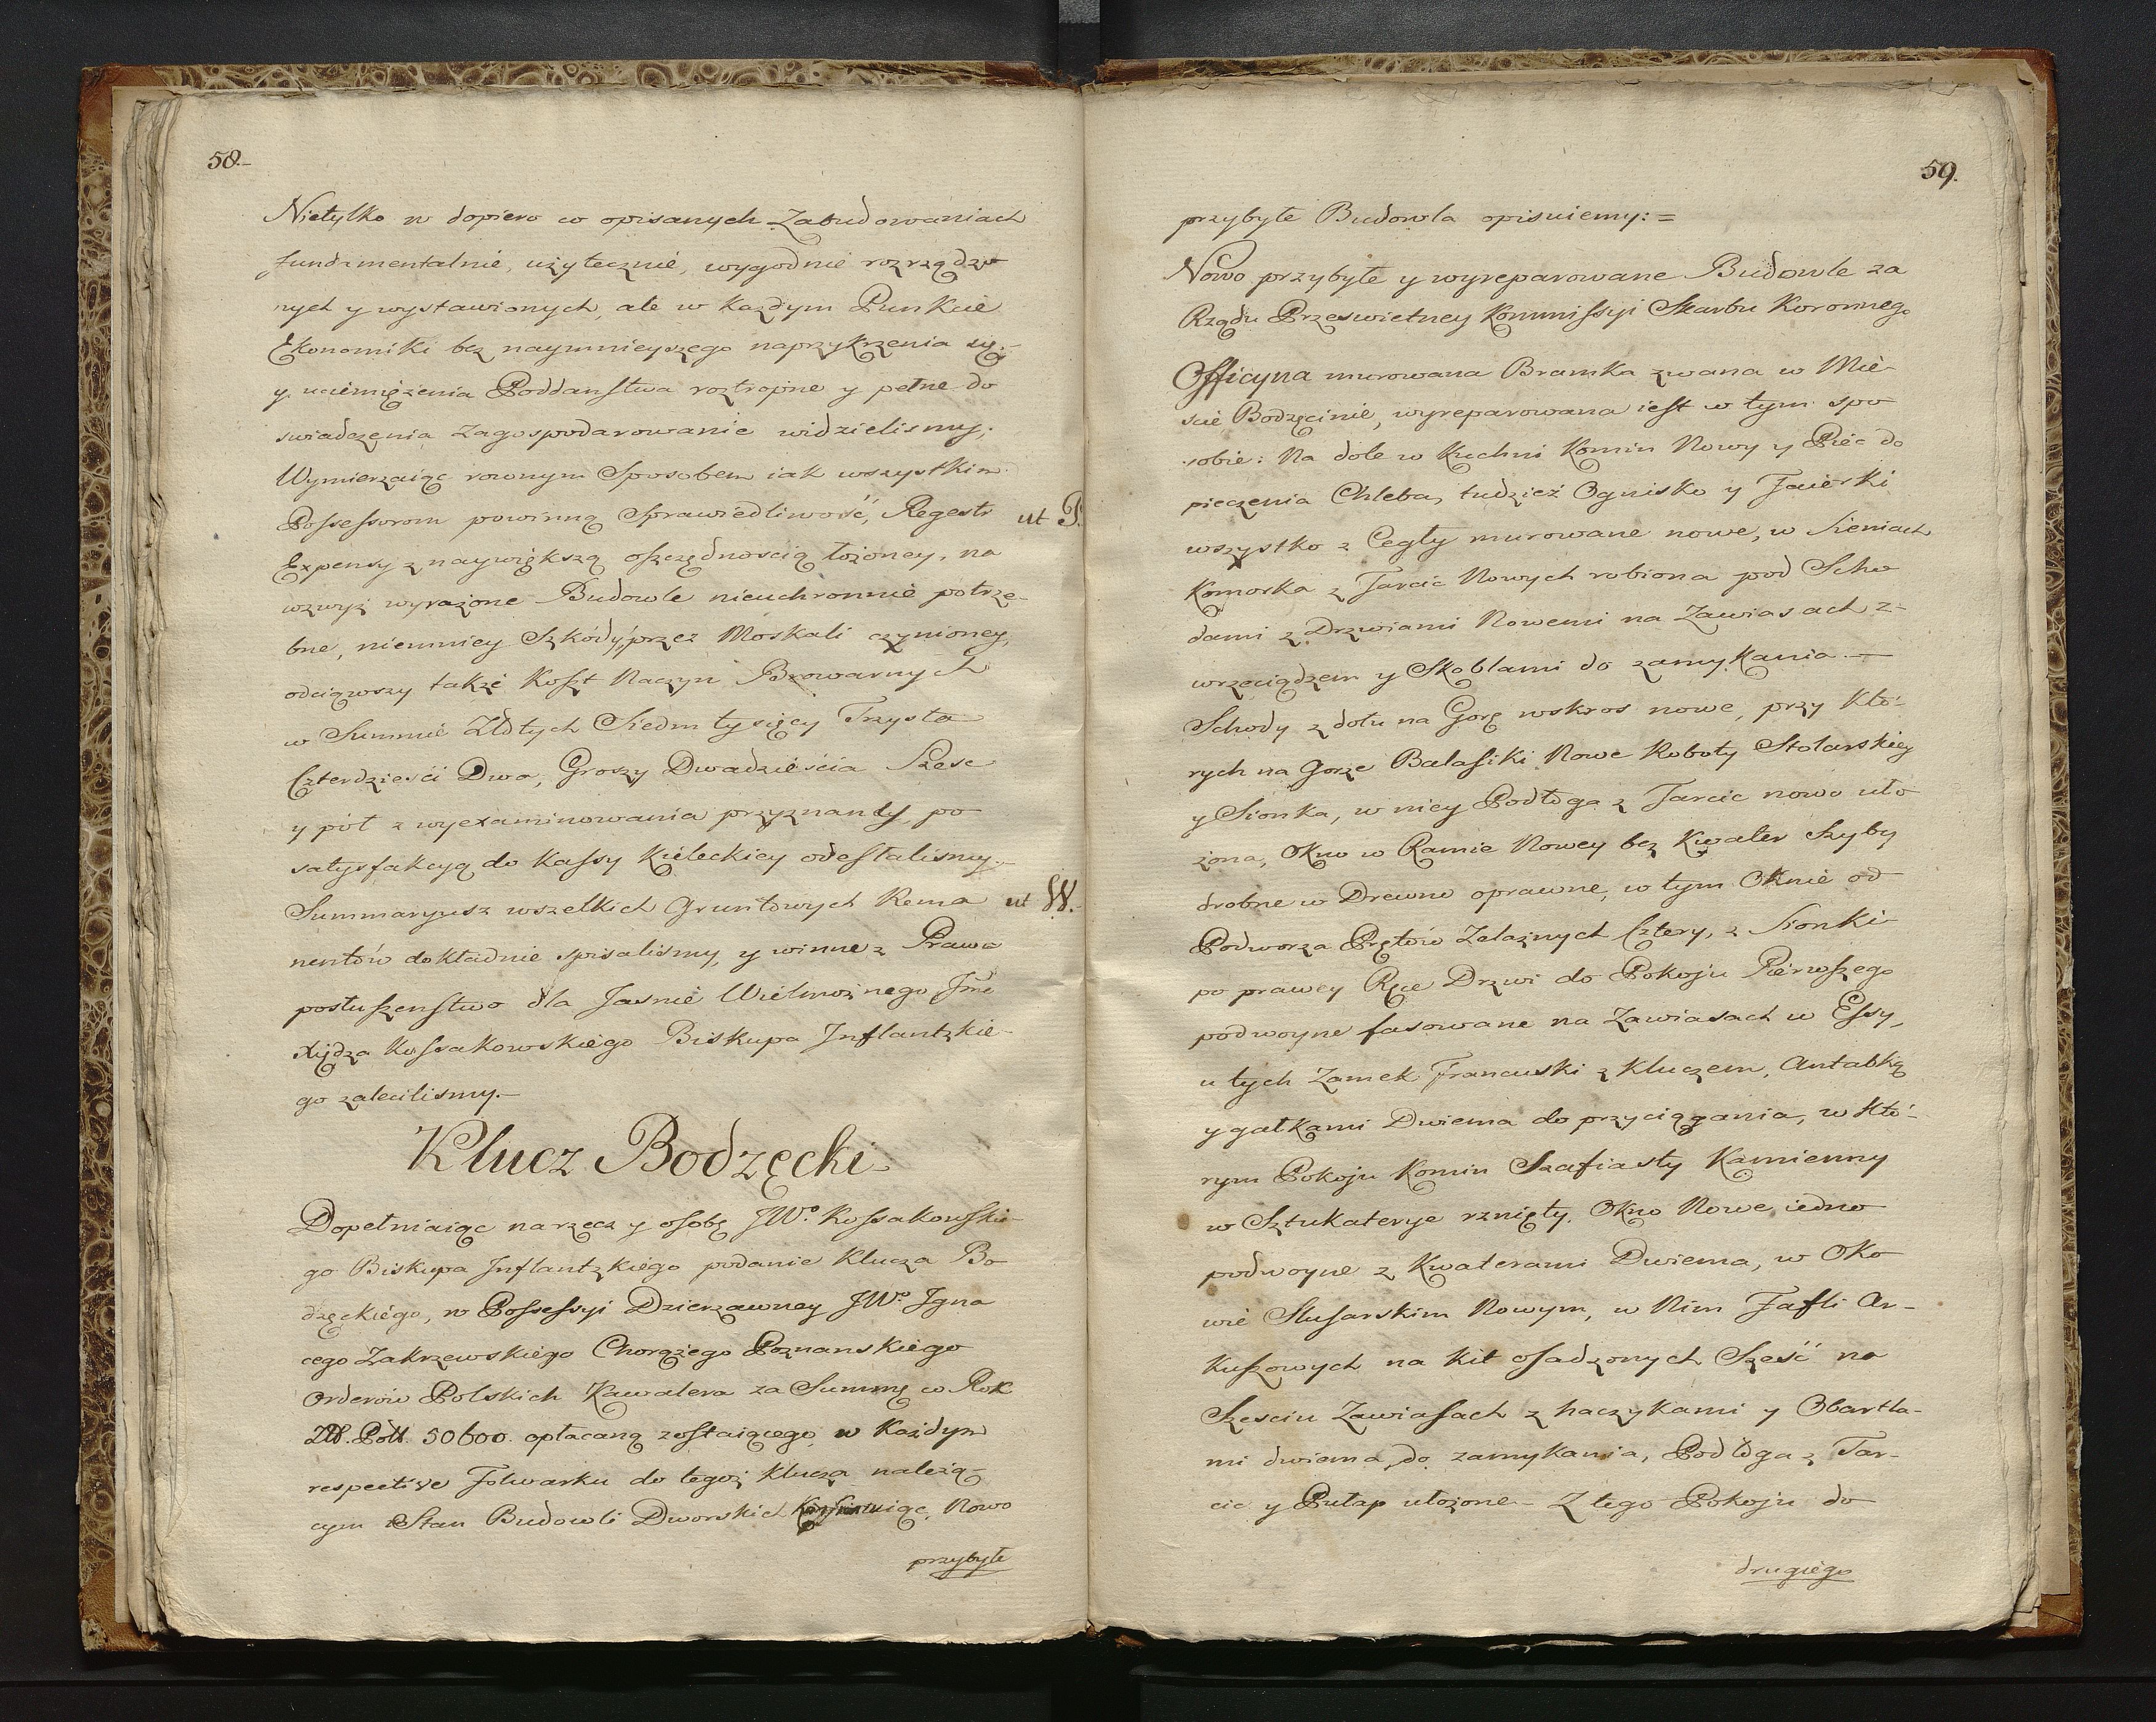 58.-
Nietylko w dopiero co opisanych Zabudowaniach
fundamentalnie, użytecznie, wygodnie rozrządzo
nych y wystawionych, ale w każdym Punkcie
Ekonomiki bez naymnieyszego naprzykrzenia się
y uciemiężenia Poddanstwa roztropne y pełne do
swiadczenia zagospodarowanie widzielismy;
Wymierzaiąc rownym Sposobem iak wszystkim
Possessorom powinną Sprawiedliwość, Regestr ut P.
Expensy z naywiększą oszczędnoscią łożoney, na
wzwyż wyrażone Budowle nieuchronnie potrze-
bne, niemniey Szkody przez Moskali czynioney,
odciąwszy także Koszt Naczyn Browarnych
w Summie Złotych Siedm tysięcy Trzysta
Czterdzieści Dwa, Groszy Dwadzieścia Szesc
y puł z wyexaminowania przyznany, po
satysfakcyą do Kassy Kieleckiey odesłalismy.-
Summaryusz wszelkich Gruntowych Rema ut W.
nentów dokładnie spisalismy, y winne z Prawa
posłuszenstwo dla Jasnie Wielmożnego Jmć
Xiędza Kossakowskiego Biskupa Inflantzkie-
go zalecilismy.-
Klucz Bodzęcki
Dopełniaiąc na rzecz y osobę JWo. Kossakowskie-
go Biskupa Inflantzkiego podanie Klucza Bo-
dzęckiego, w Possessyi Dzierzawney JWo. Igna
cego Zakrzewskiego Chorążego Poznanskiego
Orderów Polskich Kawalera za Summę w Rok
Zł. Poll. 50600. opłacaną zostaiącego, w Każdym
respective Folwarku do tegoż Klucza należą-
cym Stan Budowli Dworskich, Nowo
przybyłe
59.
przybyłe Budowla opisuiemy: =
Nowo przybyłe y wyreparowane Budowle za
Rządu Przeswietney Kommissyi Skarbu Koronnego
Officyna murowana Bramka zwana w Mie-
scie Bodzęcinie, wyreparowana iest w tym spo
sobie: Na dole w Kuchni Komin Nowy y Piec do
pieczenia Chleba, tudzież Ognisko y Faierki
wszystko z Cegły murowane nowe, w Sieniach
Komorka z Tarcic Nowych robiona pod Scho
dami z Drzwiami Nowemi na Zawiasach z-
wrzeciądzem y Skoblami do zamykania.-
Schody z dołu na Gorę wskros nowe, przy Któ-
rych na Gorze Balasiki Nowe Roboty Stolarskiey
y Sionka, w niey Podłoga z Tarcic nowo uło
żona, Okno w Ramie Nowey bez Kwater Szyby
drobne w Drewno oprawne, w tym Oknie od
Podworza Prętów Zelaznych Cztery, z Sionki
po prawey Ręce Drzwi do Pokoju Pierwszego
podwoyne fasowane na Zawiasach w Essy,
u tych Zamek Francuski z Kluczem, Antabką
y gałkami Dwiema do przyciągania, w Któ-
rym Pokoju Komin Szafiasty Kamienny
w Sztukaterye rznięty, Okno Nowe iedno
podwoyne z Kwaterami Dwiema, w Oko
wie Slusarskim Nowym, w Nim Tafli Ar-
kuszowych na Kit osadzonych Sześć na
Szesciu Zawiasach z haczykami y Obartla-
mi dwiema do zamykania, Podłoga z Tar-
cic y Pułap ułożone - Z tego Pokoju do
drugiego